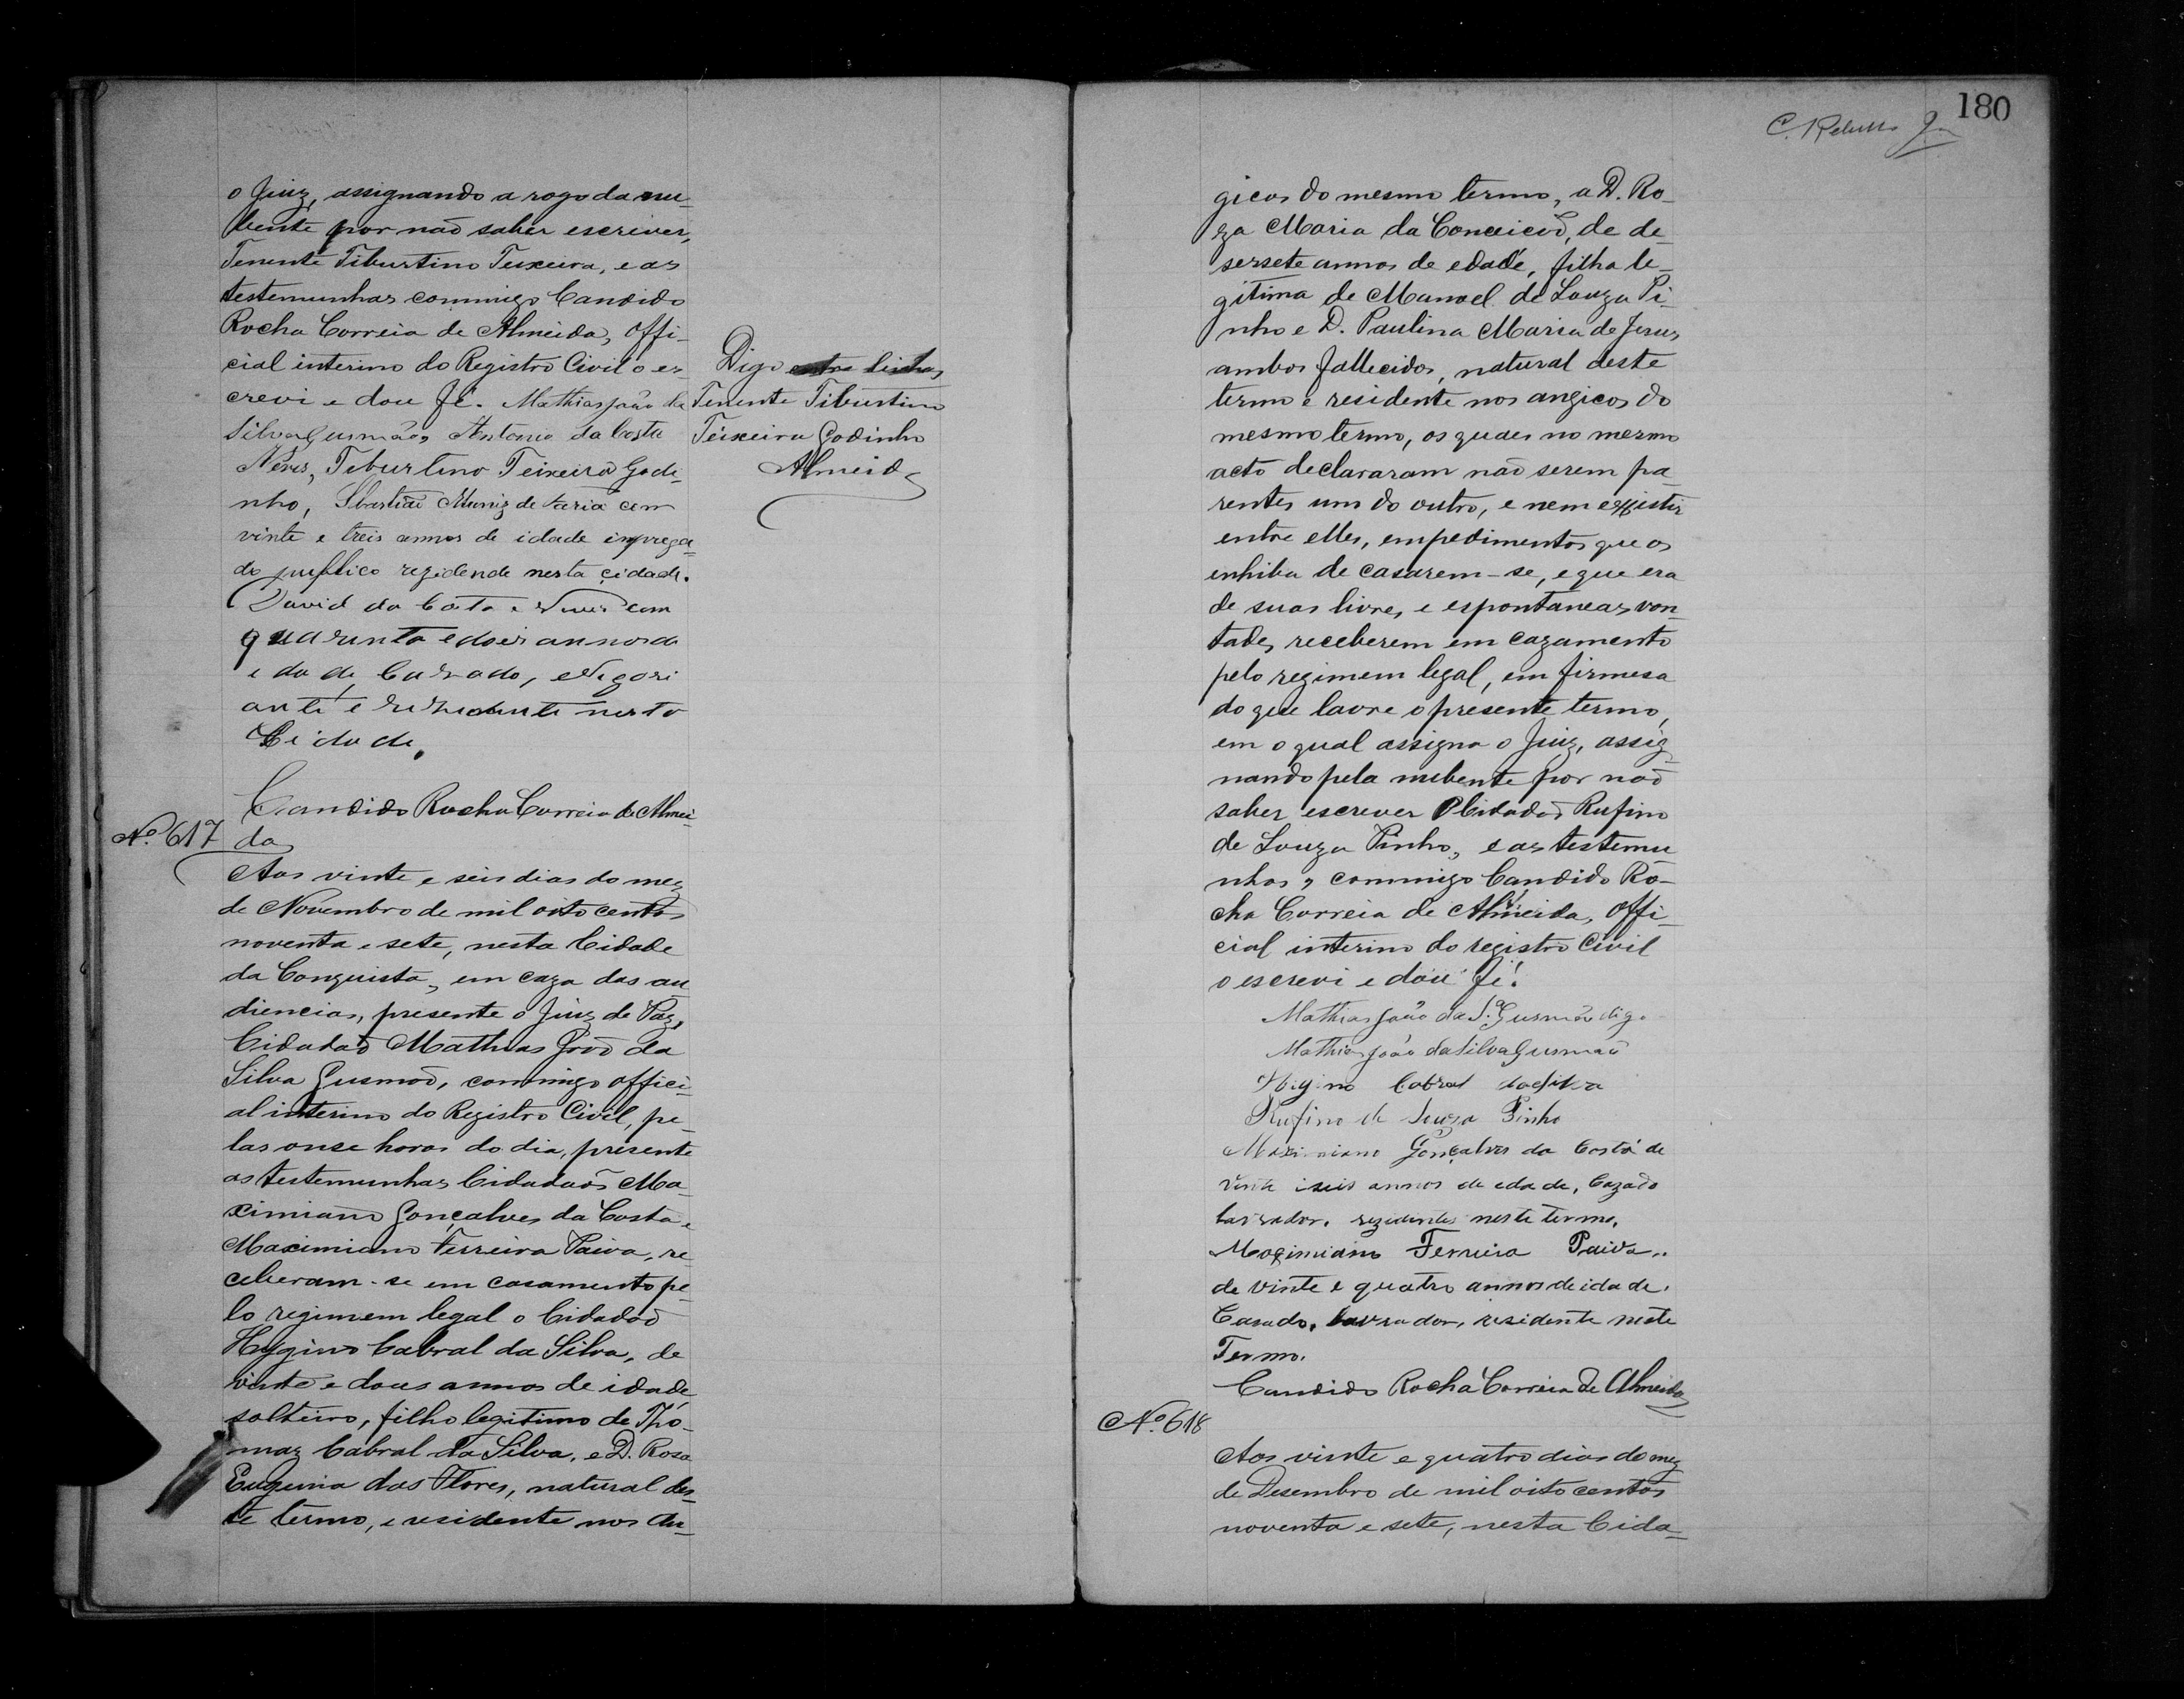 o Juiz, assignando a rogo da nu-
bente por não saber escrever,
Tenente Tiburtino Teixeira, e as
testemunhas commigo Candido
Rocha Correia de Almeida, offi-
cial interino do Registro Civil o es-
crevi e dou fé. Mathias João da
Silva Gusmão, Antonio da Costa
Neves, Teburtino Teixeira Godi-
nho, Sbastião Muniz de Faria com
vinte e treis annos de idade imprega-
do puplico rezidende nesta cidade.
David da Costa e com
quarenta e dois annos da
e da de, Cazado, e Negosi
ante e rezedente nesta
Cidade.
Candido Rocha Correia de Almei-
da
Digo entre linhas
Tenente Tiburtino
Teixeira Godinho
Almeida
Nº 617
Aos vinte e seis dias do mez
de Novembro de mil oito centos
noventa e sete, nesta Cidade
da Conquista, em caza das au
diencias, presente o Juiz de Paz,
Cidadaõ Mathias Joaõ da
Silva Gusmaõ, commigo offici-
al interino do Registro Civil, pe-
las onse horas do dia, presente
as testemunhas Cidadaõs Ma-
ximiano Gonçalves da Costa, e
Maximiano Ferreira Paiva, re-
ceberam-se em casamento pe-
lo regimem legal o Cidadaõ
Hygino Cabral da Silva, de
vinte e dous annos de idade,
solteiro, filho legitimo de Tho-
maz Cabral da Silva, e D. Rosa
Eugenia das Flores, natural des-
te termo, e residente nos An-
180
gicos do mesmo termo, a D. Ro-
za Maria da Conceicõ, de de-
sersete annos de edade, filha le-
gitima de Manoel de Souza Pi-
nho e D. Paulina Maria de Jesus,
ambos fallecidos, natural deste
termo e residente nos angicos do
mesmo termo, os quaes no mesmo
acto declararam naõ serem pa-
rentes um do outro, e nem existir
entre elles, empedimentos que os
enhiba de casarem-se, e que era
de suas livres, e espontaneas von-
tades receberem em cazamento
pelo regimem legal, em firmesa
do que lavre o presente termo,
em o qual assigna o Juiz, assig-
nando pela nubente por naõ
saber escrever o Cidadaõ Rufino
de Souza Pinho, e as testemu
nhas, commigo Candido Ro-
cha Correia de Almeida, Offi-
cial interino do registro Civil
o escrevi e dou fé!
Mathias João da Sª Gusmão digo
Mathias João da Silva Gusmaõ
Higino Cabral da Silva
Rufino de Souza Pinho
Maximiano Gonçalves da Costa de
vinte i seis annos de edade, Cazado
lavrador, rezidentes neste termo.
Maximiano Ferreira Paiva..
de vinte e quatro annos de idade.
Casado, lavrador, residente neste
Termo.
Candido Rocha Correia de Almeida
Nº 618
Aos vinte e quatro dias do mez
de Desembro de mil oito centos
noventa e sete, nesta Cida-